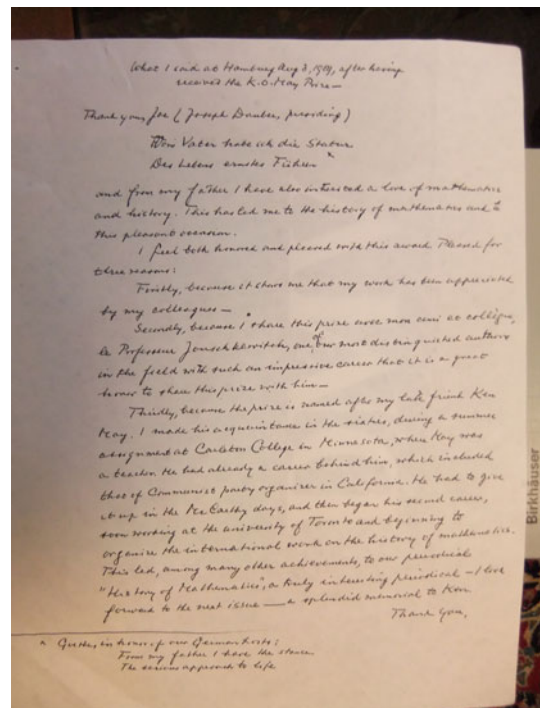 What I said at Hamburg Aug 3, 1989, after having
received the K.O. May Prize—
Thank you, Joe (Joseph Dauben, presiding)
Vom Vater hab ich die Statur
Des Lebens ernstes Führen *
and from my father I have also inherited a love of mathematics
and history. This has led me to the history of mathematics and to
this pleasant occasion.
I feel both honored and pleased with this award. Pleased for
three reasons:
Firstly, because it shows me that my work has been appreciated
by my colleagues—
Secondly, because I share this prize avec mon ami et collègue,
le Professeur Jouschkewitch, one of our most distinguished authors
in the field with such an impressive career that it is a great
honor to share this prize with him—
Thirdly, because the prize is named after my late friend Ken
May. I made his acquaintance in the sixties, during a summer
assignment at Carleton College in Minnesota, when May was
a teacher. He had already a career behind him, which included
that of Communist party organizer in California. He had to give
it up in the McCarthy days, and then began his second career,
soon working at the university of Toronto and beginning to
organize the international work on the history of mathematics.
This led, among many other achievements, to our periodical
"History of Mathematics", a truly interesting periodical — I look
forward to the next issue — a splendid memorial to Ken.
Thank you,
* Goethe, in honor of our German hosts:
From my father I have the stature,
The serious approach to life
Birkhäuser